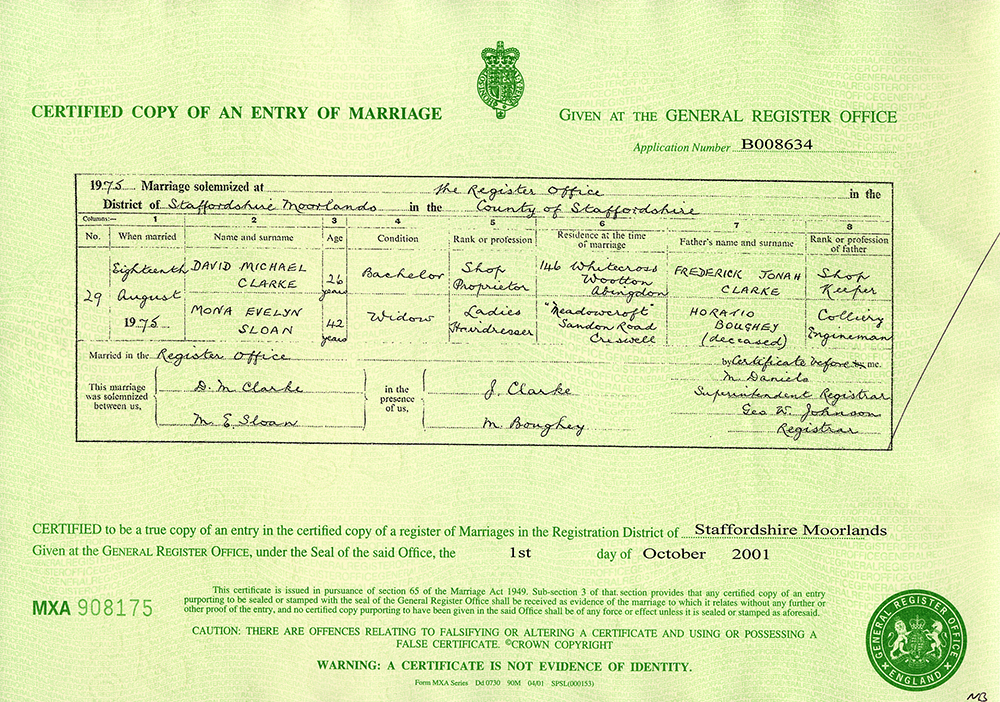 CERTIFIED COPY OF AN ENTRY OF MARRIAGE
GIVEN AT THE GENERAL REGISTER OFFICE
Application Number B008634
1975 Marriage solemnized at the Register Office in the
District of Staffordshire Moorlands in the County of Staffordshire
Columns:— 1 2 3 4 5 6 7 8
No. When married Name and surname Age Condition Rank or profession Residence at the time of marriage Father's name and surname Rank or profession of father
29
Eighteenth
August
1975
DAVID MICHAEL
CLARKE
26
years
Bachelor
Shop
Proprietor
146 Whitecross
Wootton
Abingdon
FREDERICK JONAH
CLARKE
Shop
Keeper
MONA EVELYN
SLOAN
42
years
Widow
Ladies
Hairdresser
"Meadowcroft
Sandon Road
Creswell
HORATIO
BOUGHEY
(deceased)
Colliery
Engineman
Married in the Register Office
by Certificate before me.
This marriage
was solemnized
between us,
D. M Clarke
M. E Sloan
in the
presence
of us,
J. Clarke
M. Boughey
M. Daniels
Superintendent Registrar
Geo W. Johnson
Registrar
CERTIFIED to be a true copy of an entry in the certified copy of a register of Marriages in the Registration District of Staffordshire Moorlands
Given at the GENERAL REGISTER OFFICE, under the Seal of the said Office, the 1st day of October 2001
MXA 908175
This certificate is issued in pursuance of section 65 of the Marriage Act 1949. Sub-section 3 of that section provides that any certified copy of an entry
purporting to be sealed or stamped with the seal of the General Register Office shall be received as evidence of the marriage to which it relates without any further or
other proof of the entry, and no certified copy purporting to have been given in the said Office shall be of any force or effect unless it is sealed or stamped as aforesaid.
CAUTION: THERE ARE OFFENCES RELATING TO FALSIFYING OR ALTERING A CERTIFICATE AND USING OR POSSESSING A
FALSE CERTIFICATE. ©CROWN COPYRIGHT
WARNING: A CERTIFICATE IS NOT EVIDENCE OF IDENTITY.
Form MXA Series Dd 0730 90M 04/01 SPSL(000153)
GENERAL REGISTER OFFICE
ENGLAND
MB